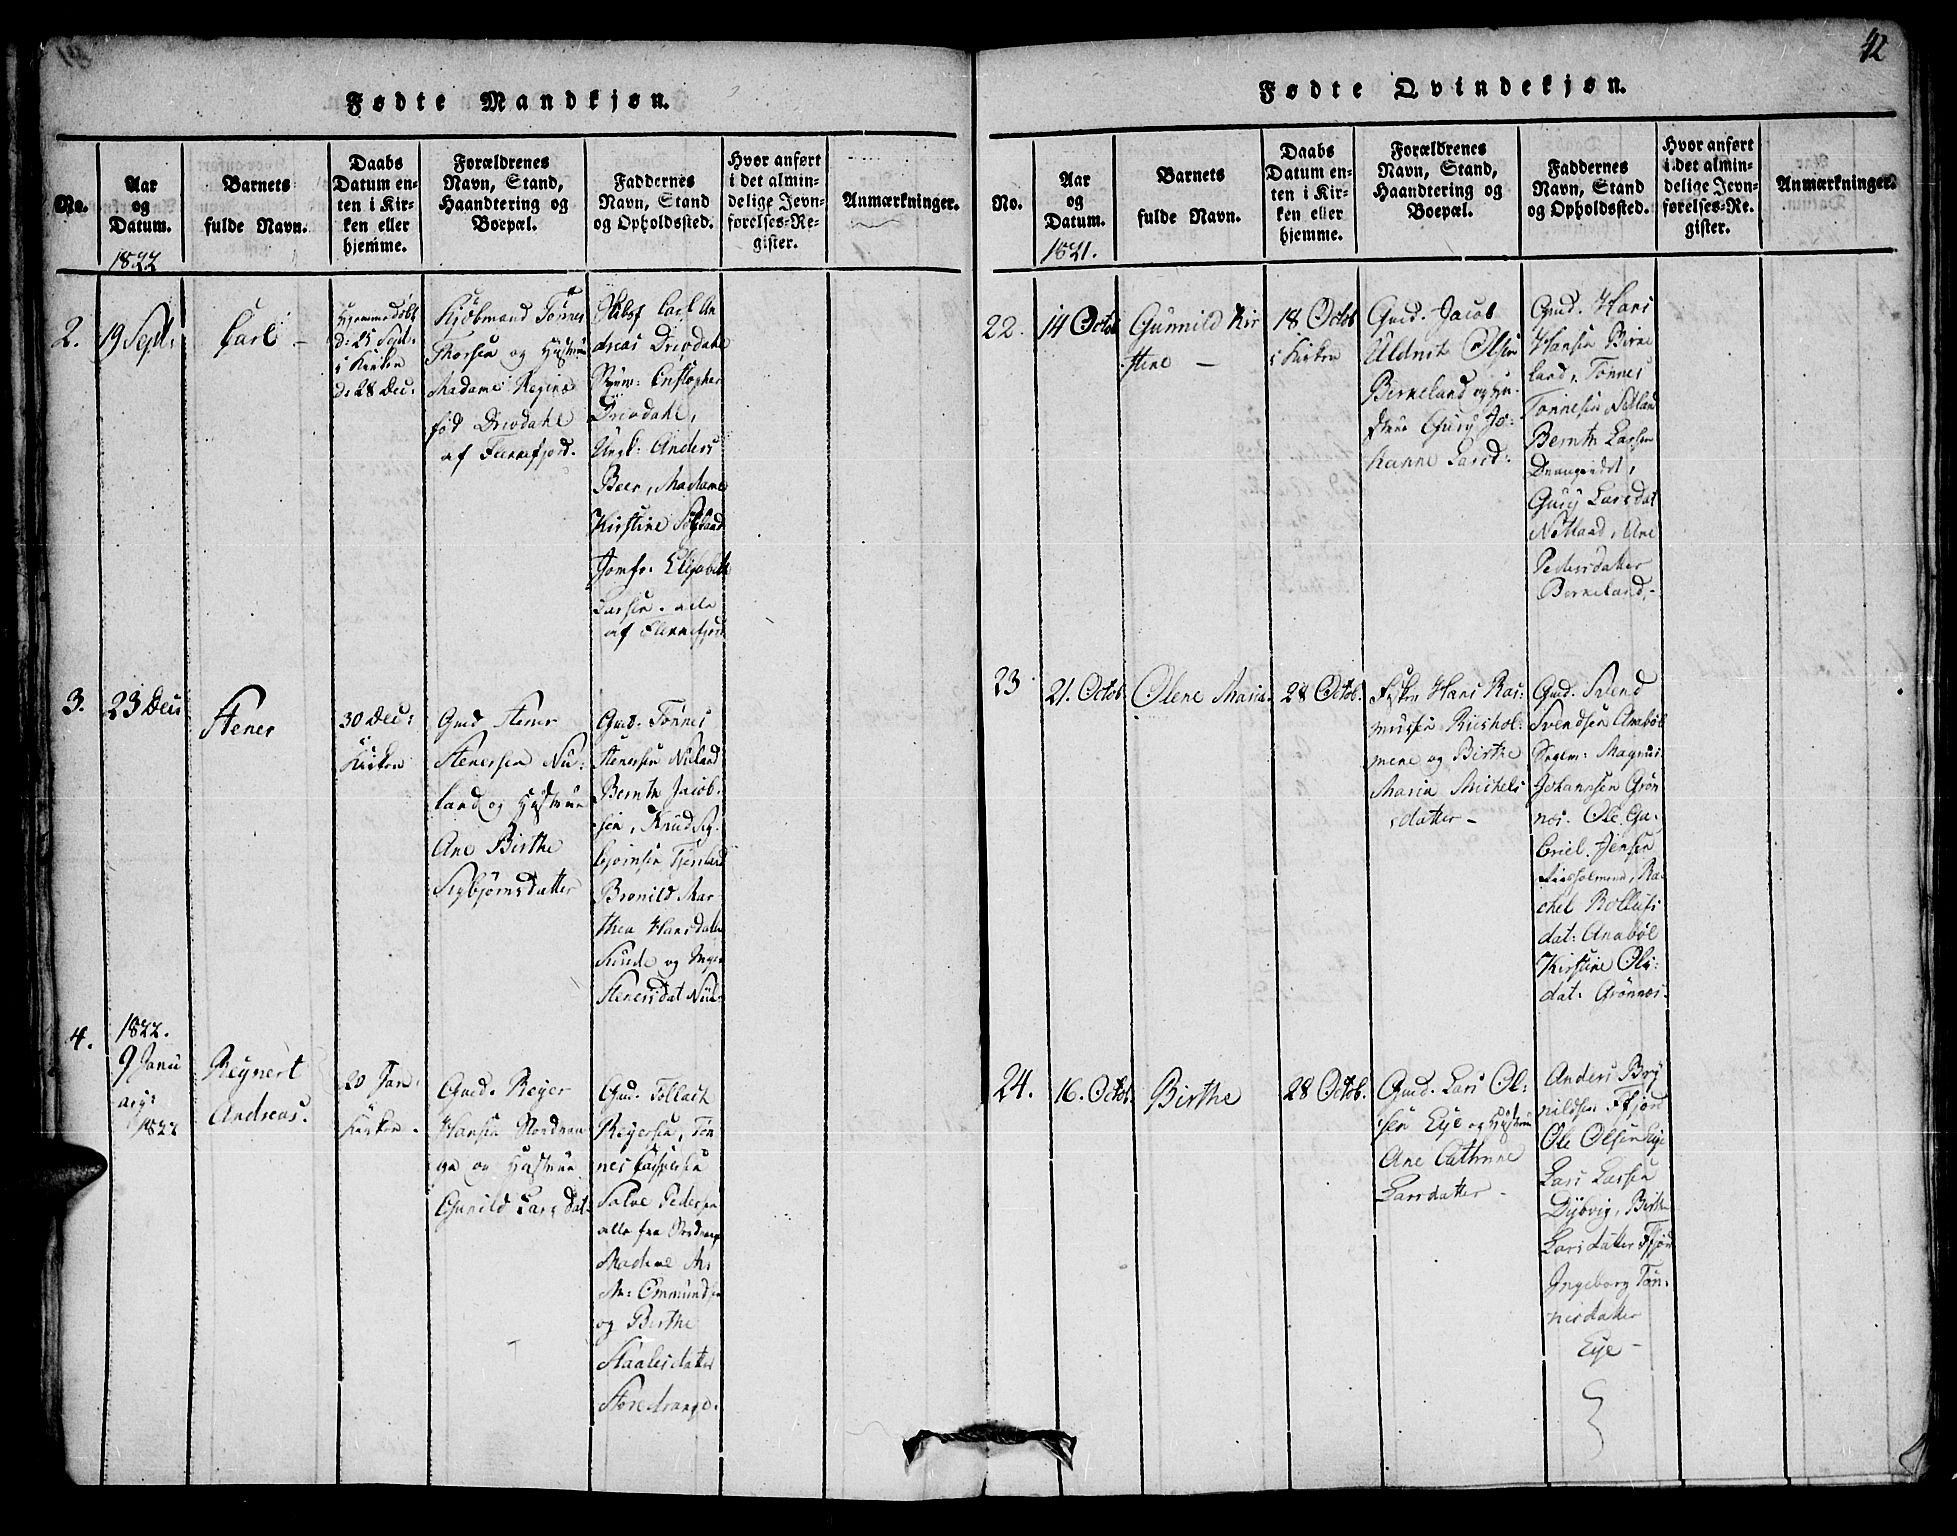 42
Fødte Mandkjøn.
No.
Aar
og
Datum.
1822
Barnets
fulde Navn.
Daabs
Datum en-
ten i Kir-
ken eller
hjemme.
Forældrenes
Navn, Stand,
Haandtering og
Boepæl.
Faddernes
Navn, Stand
og Opholdssted.
Hvor anført
i det almin-
delige Jevn-
førelses-Re-
gister.
Anmærkninger.
2.
19 Sept:
Carl –
Hjemmedøbt
d: 25 Sept:
i Kirken
d: 28 Dec:
Kjöbmand Tønnes
Thorsen og Hustrue
Madame Regine
fød Drivdahl
af Flekkefjord.
Carl An
dreas Drivdahl
Christopher
Drivdahl,
Ungk: Anders
Beer, Madame
Kirstine
Jomfr: Elisabeth
Larsen. alle
af Flekkefjord
3.
23 Dec:
Stener
30 Dec:
i
Kirken
Gmd Stener
Stenersen Nu-
land og Hustrue
Ane Birthe
Sigbjørnsdatter
Gmd: Tønnes
Stenersen Nuland
Bernth Jacob-
sen, Knud Sig-
bjørnsen
Brønild Mar
thea Hansdatter
og Inger
Stenersdat Nul-
4.
1822.
9 Janu
ary:
1822
Reynert
Andreas.
20 Jan:
Kirken –
Gmd. Reyer
Hansen Stordran
ge og Hustrue
Gunild Larsdat.
Gmd. Tollach
Reyersen, Tøn
nes Casparsen
Salve Pedersen
alle fra Stordrange
Madame An.
M: Ommundsen
og Birthe
Staalesdatter
Storedrange.
Fødte Qvindekjøn.
No.
Aar
og
Datum.
1821.
Barnets
fulde Navn.
Daabs
Datum en-
ten i Kir-
ken eller
hjemme.
Forældrenes
Navn, Stand,
Haandtering og
Boepæl.
Faddernes
Navn, Stand
og Opholdssted.
Hvor anført
i det almin-
delige Jevn-
førelses-Re-
gister.
Anmærkninger.
22.
14 Octob
Gunnild Kir
stine –
18 Octob
i Kirken
Gmd. Jacob
Olsen
Birkeland og Hu-
strue Gury Jo-
hanne Larsd:
Gmd. Hans
Hansen Birke
land, Tønnes
Tønnesen Netland
Bernth Larsen
Drangeidet,
Gury Larsdat
Netland, Ane
Pedersdatter
Birkeland.
23
21. Octob
Olene Maria.
28 Octob.
Fisker Hans Ras-
musen Riishol-
mene og Birthe
Maria Michels
datter –
Gmd. Svend
Svendsen Anabøl
Magnus
Johannsen Grøn
næs. Ole Ga-
briel Jensen
Riisholmene, Ra-
chel Rollufs
dat: Anabøl
Kirstine Ols-
dat: Grønnæs.
24.
16. Octob.
Birthe
28 Octob.
Gmd. Lars Ol-
sen Eye og Hustrue
Ane Cathrine
Larsdatter –
Anders Bry
nildsen Ffjord
Ole Olsen Eye
Lars Larsen
Dybvig, Birthe
Larsdatter Ffjord
Ingeborg Tøn-
nesdatter
Eye –